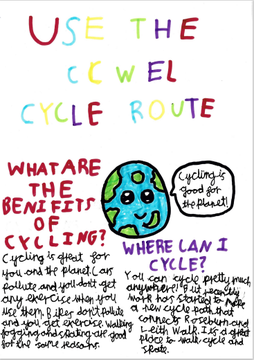 USE THE
CCWEL
CYCLE ROUTE
WHAT ARE
THE
BENIFITS
OF
CYCLING?
Cycling is great for
you and the planet. Cars
pollute and you don't get
any exercise when you
use them, Bikes don't pollute
and you get exercise. walking
jogging and skating are good
for the same reasons.
Cycling is
good for
the planet!
WHERE CAN I
CYCLE?
You can cycle pretty much
anywhere! But recently
work has started to make
a new cycle path that
connects Roseburn and
Leith Walk. It is a great
place to walk, cycle and
skate.